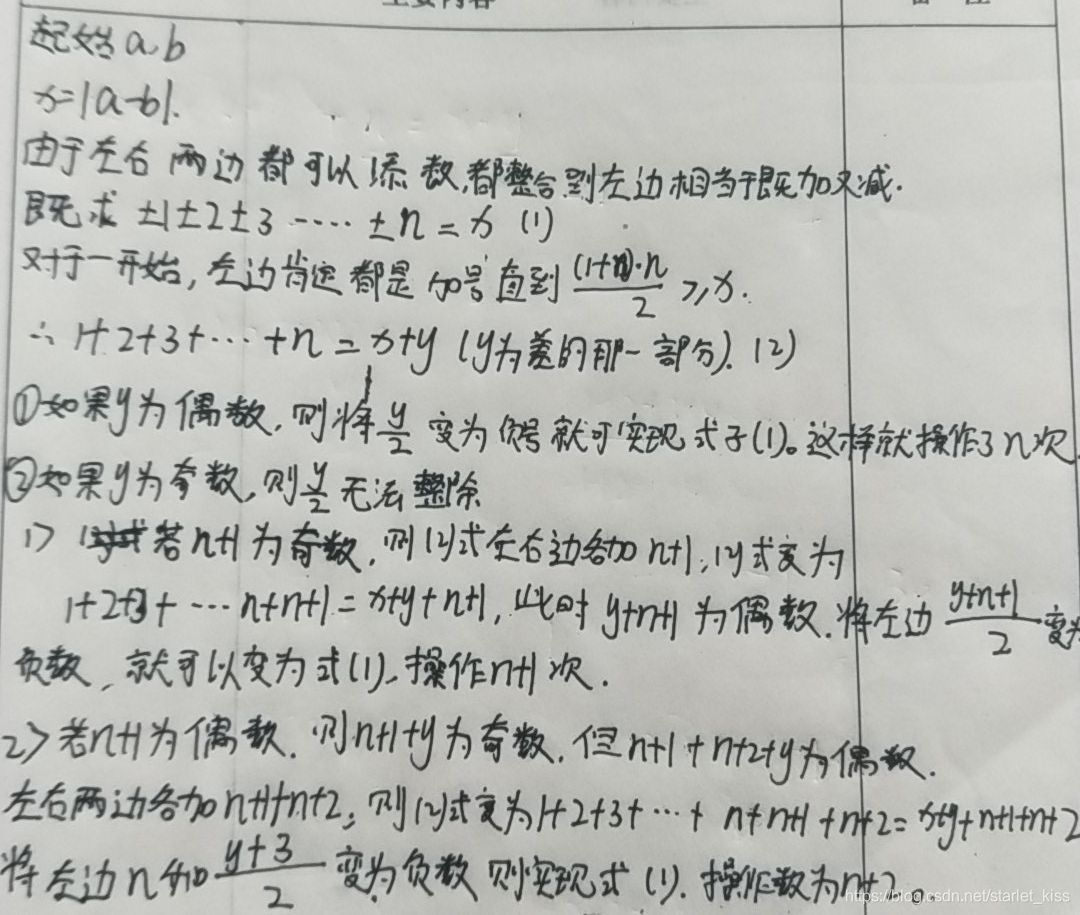 主要内容 备 注
起始 a,b
x=|a-b|.
由于左右两边都可以添数,都整合到左边相当于既加又减.
既求 ±1±2±3 ····· ±n = x (1)
对于一开始,左边肯定都是加号直到 (1+n)·n/2 ≥x.
∴ 1+2+3+···+n = x+y (y为差的那一部分). (2)
①如果y为偶数,则将 y/2 变为负号就可实现式子(1)。这样就操作了n次
②如果y为奇数,则 y/2 无法整除
1> 若n+1为奇数,则(2)式左右边各加n+1,(2)式变为
1+2+3+ ··· n+n+1 = x+y+n+1, 此时 y+n+1 为偶数.将左边 y+n+1/2 变为
负数,就可以变为式(1),操作n+1次.
2> 若n+1为偶数.则n+1+y为奇数,但n+1+n+2+y为偶数.
左右两边各加n+1+n+2,则(2)式变为1+2+3+···+ n+n+1+n+2= x+y+n+1+n+2
将左边n和 y+3/2 变为负数 则实现式(1).操作数为n+2。
https://blog.csdn.net/starlet_kiss